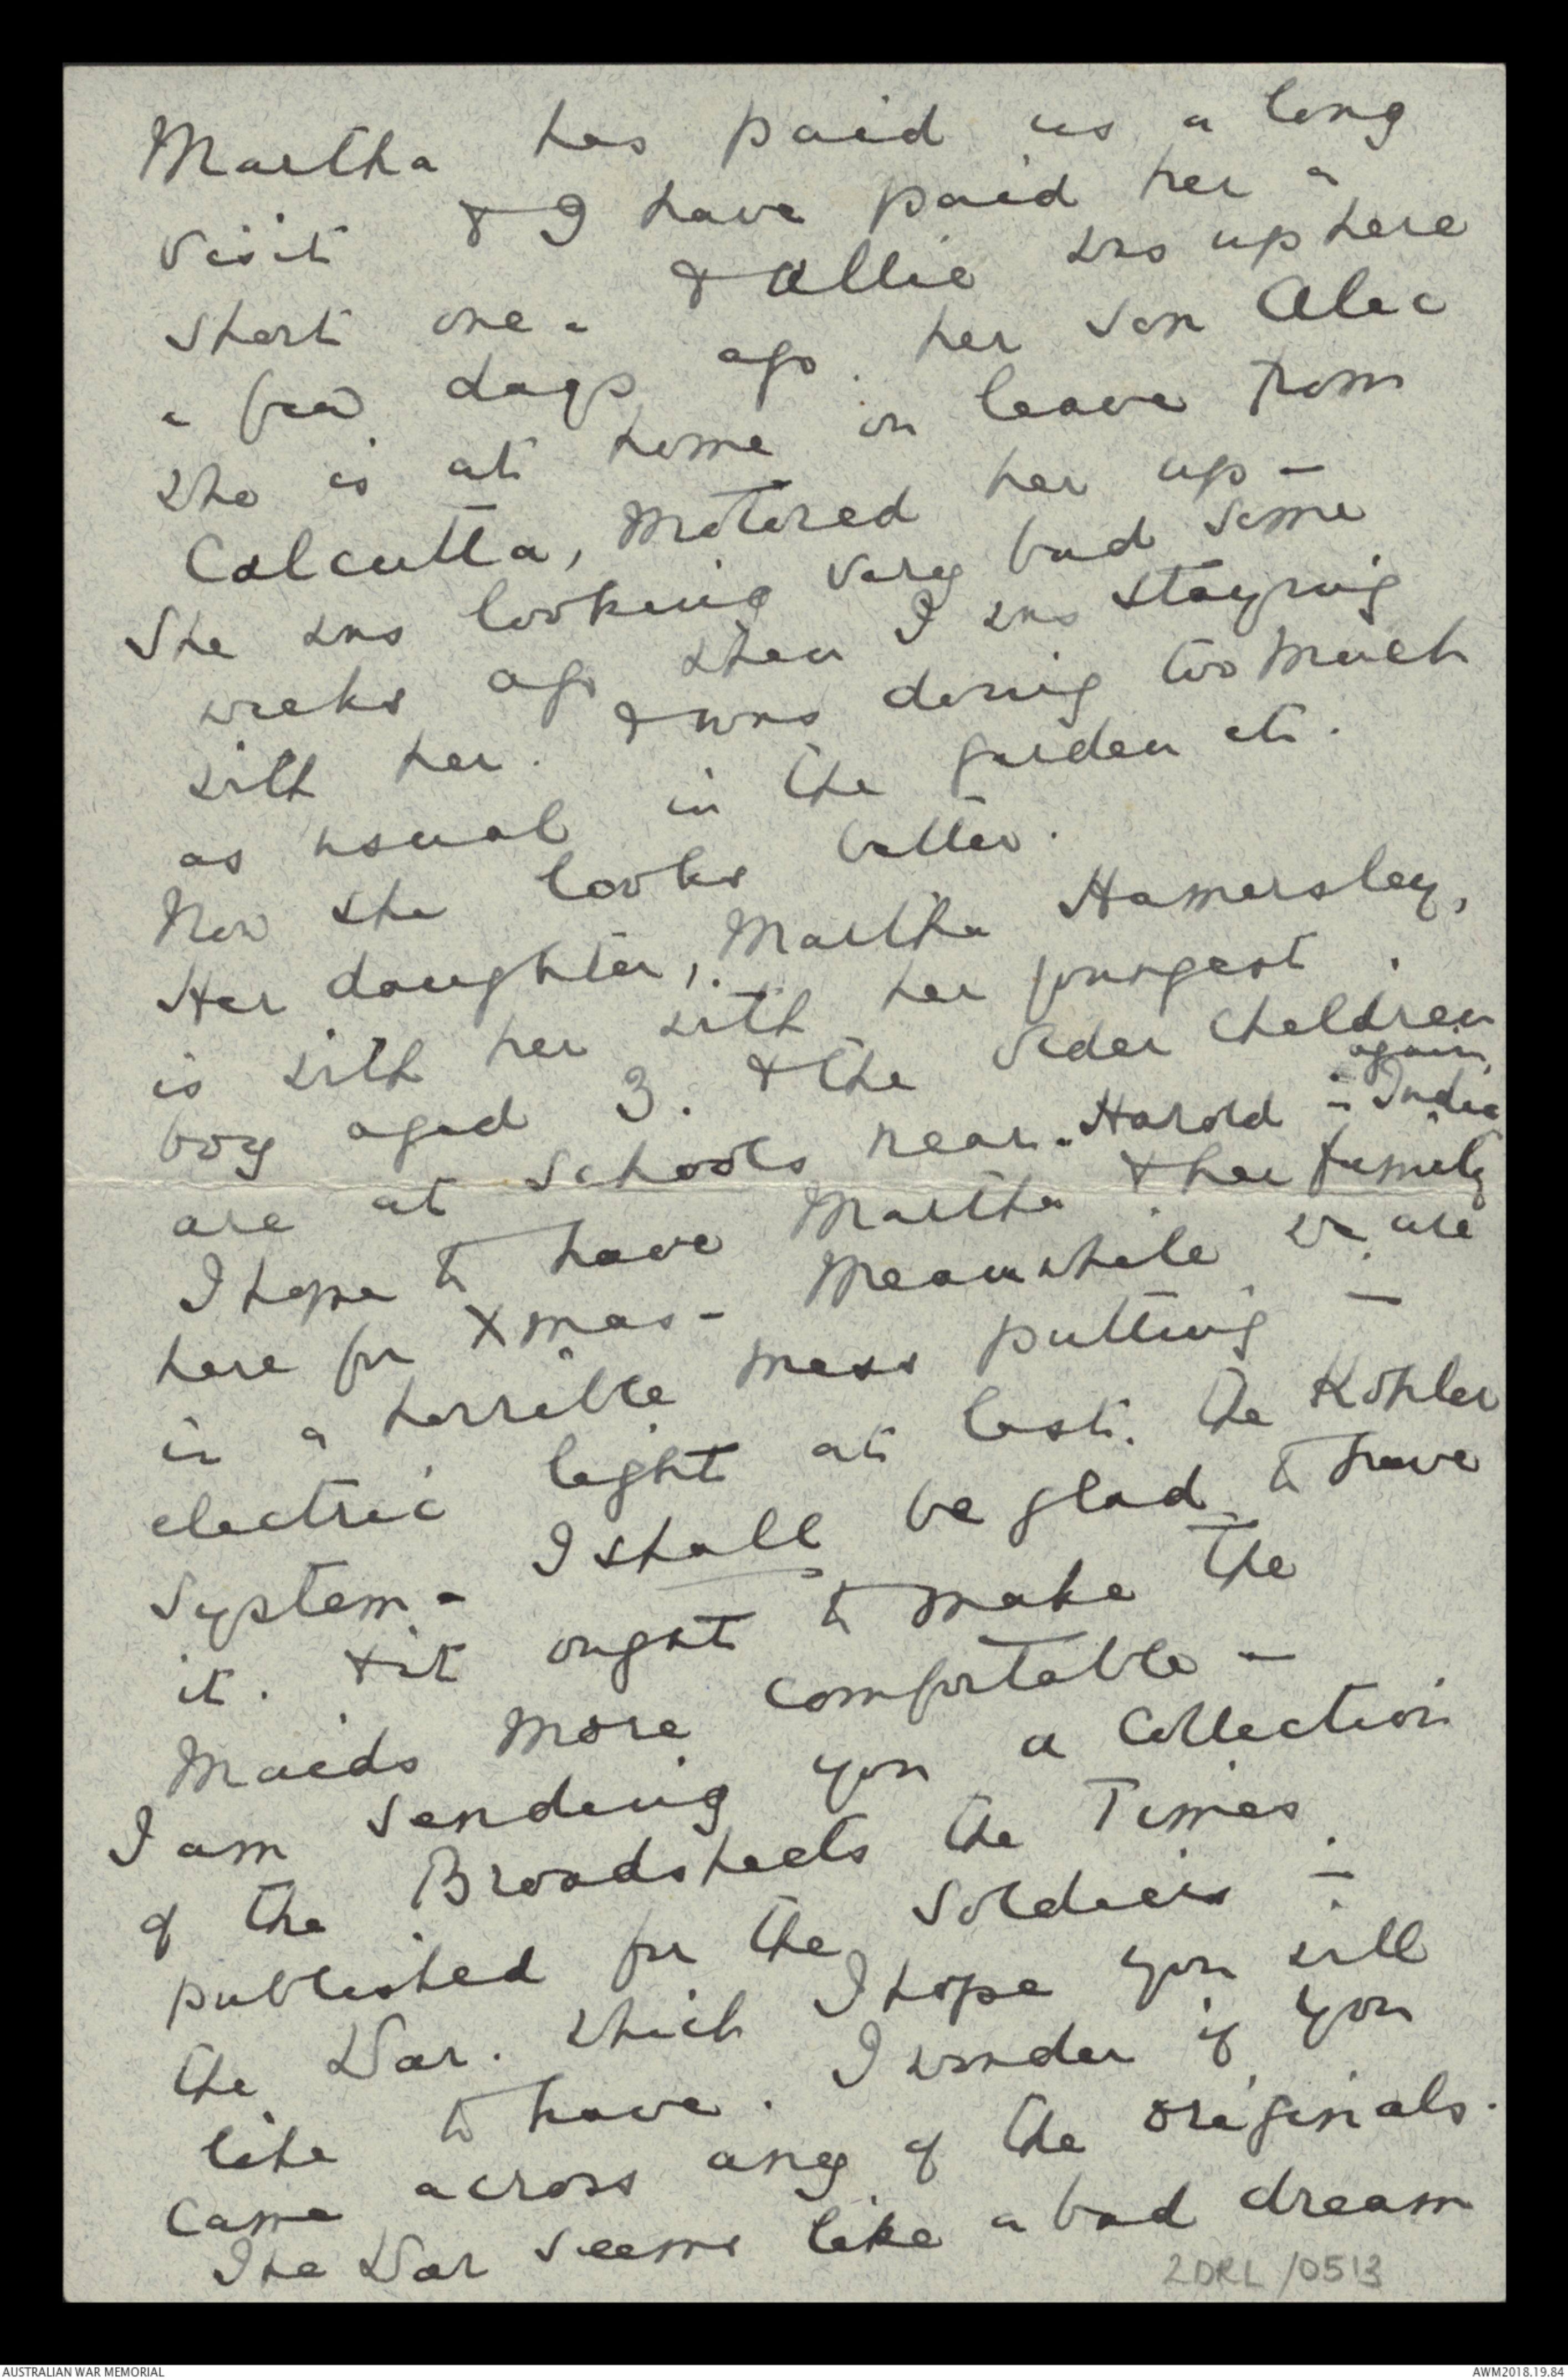 Martha has paid us a long
visit & I have paid her a
short one - & Allie was up here
a few days ago. her son Alec
who is at home on leave from
Calcutta, motored her up -
She was looking very bad some
weeks ago when I was staying
with her. & was doing too much
as usual in the garden etc.
Now she looks better.
Her daughter, Martha Hamersley,
is with her with her youngest
boy aged 3. & the elder children
are at schools near. Harold in India
again
I hope to have Martha & her family
here for Xmas - Meanwhile we are
in a horrible mess putting -
electric light at last. The Kohler
System - I shall be glad to have
it. & it ought to make the
Maids more comfortable -
I am sending you a Collection
of the Broadsheets the Times
published for the Soldiers -
the War. which I hope you will
like to have. I wonder if you
came across any of the originals.
The War seems like a bad dream
2DRL/0513
AUSTRALIAN WAR MEMORIAL
AWM2018.19.84